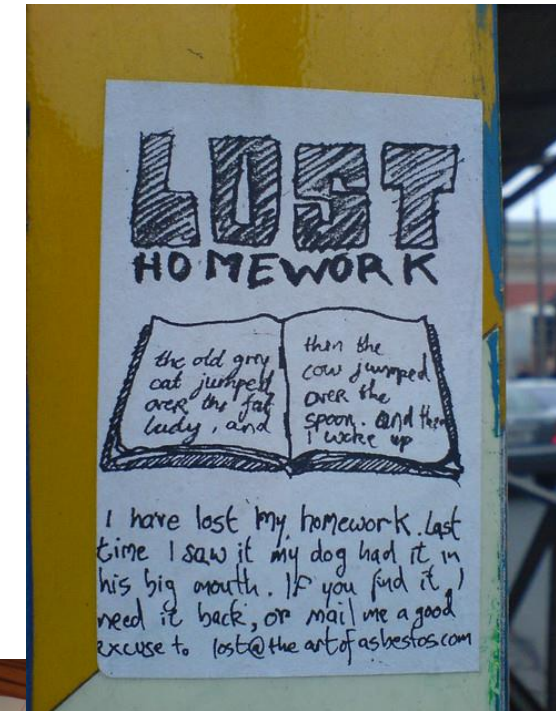 LOST
HOMEWORK
the old grey
cat jumped
over the fat
lady, and
then the
cow jumped
OVER the
spoon. and then
I woke up
I have lost my homework. Last
time I saw it my dog had it in
his big mouth. If you find it, I
need it back, or mail me a good
excuse to lost@theartofasbestos.com